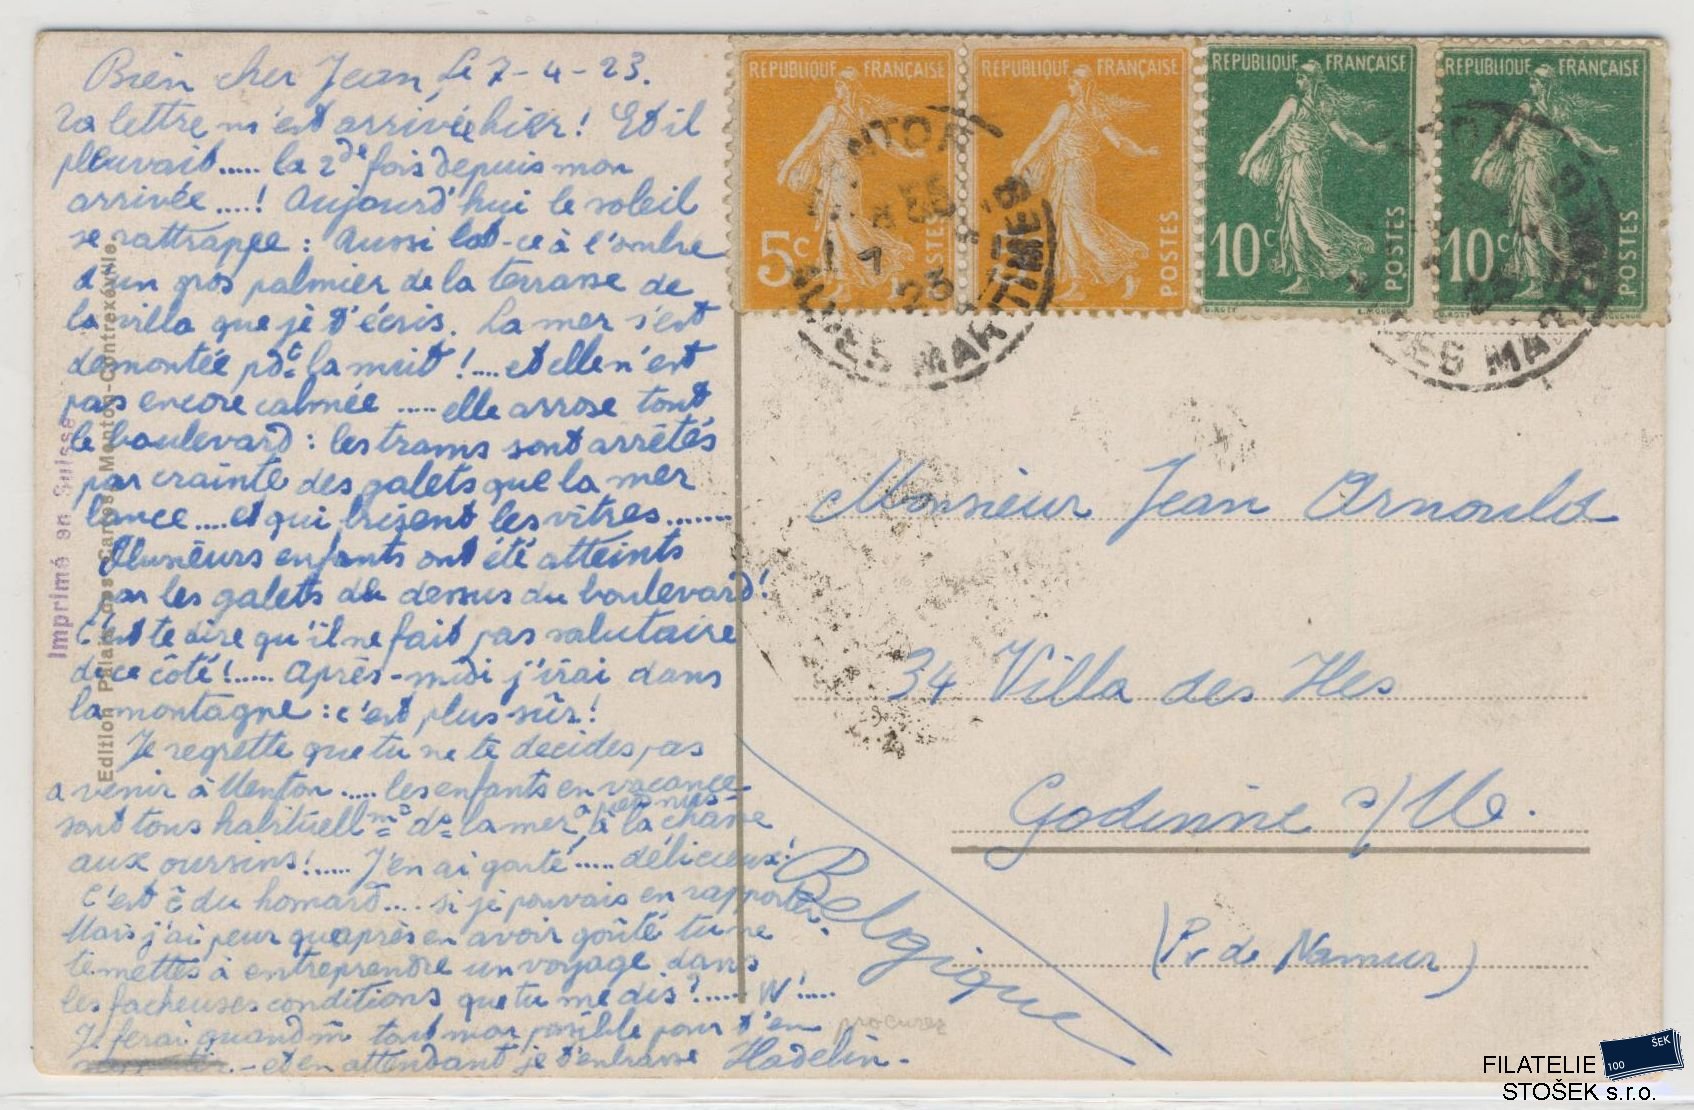 Bien cher Jean, Le 7-4-23.
Ta lettre m'est arrivée hier! Et il
pleuvait..... la 2de fois depuis mon
arrivée.....! Aujourd'hui le soleil
se rattrappe : Aussi est-ce à l'ombre
d'un gros palmier de la terrasse de
la villa que je t'écris. La mer s'est
démontée pdt la nuit!.... et elle n'est
pas encore calmée ..... elle arrose tout
le boulevard : les trams sont arrêtés
par crainte des galets que la mer
lance .... et qui brisent les vitres........
Plusieurs enfants ont été atteints
par les galets de dessus du boulevard!
C'est te dire qu'il ne fait pas salutaire
de ce côté!..... Après-midi j'irai dans
la montagne : c'est plus sûr!
Je regrette que tu ne te décides pas
a venir à Menton ..... les enfants en vacance
sont tous habituellmt ds la mer, à pied nus
à la chasse
aux oursins!..... J'en ai gouté ..... délicieux!
C'est c du homard.... si je pouvais en rapporter.
Mais j'ai peur qu'après en avoir goûté tu ne
te mettes à entreprendre un voyage dans
les facheuses conditions que tu me dis?......
Je ferai quand m tout mon possible pour t'en procurer
- et en attendant je t'embrasse Hadelin.-
Imprimé en Suisse
Edition Palais des Cartes Menton-Contrexéville
REPUBLIQUE FRANÇAISE
5c POSTES
REPUBLIQUE FRANÇAISE
POSTES
REPUBLIQUE FRANÇAISE
10c POSTES
REPUBLIQUE FRANÇAISE
10c POSTES
MENTON
7 23
ALPES MARITIMES
ALPES MARITIMES
Monsieur Jean Arnould
34 Villa des Iles
Godinne s/Me.
(Pr de Namur)
Belgique
FILATELIE
STOŠEK s.r.o.
100 ŠEK